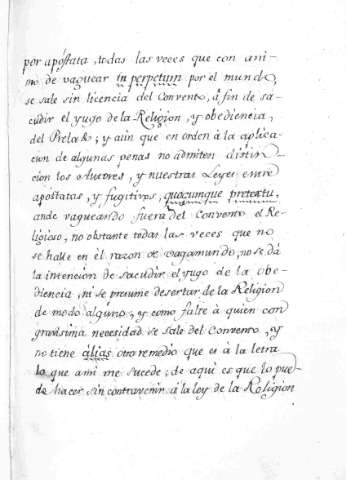 por apóstata, todas las veces que con ani-
mo de vaguear in perpetum por el mundo,
se sale sin licencia del Convento, á fin de sa-
cudir el yugo de la Religion, y obediencia,
del Prelado; y aun que en orden á la aplica-
cion de algunas penas no admiten distin-
cion los Autores, y nuestras Leyes entre
apóstatas, y fugitivos, quocumque pretextu,
ande vagueando fuera del Convento el Re-
ligioso, no obstante todas las veces que no
se halle en él razon de vagamundo, no se dá
la intencion de sacudir el yugo de la obe-
diencia, ni se presume desertar de la Religion
de modo alguno; y como falte á quien con
gravisima necesidad se sale del Convento, y
no tiene alias otro remedio que es á la letra
lo que ami me sucede; de aqui es que lo pue-
de hacer sin contravenir á la ley de la Religion